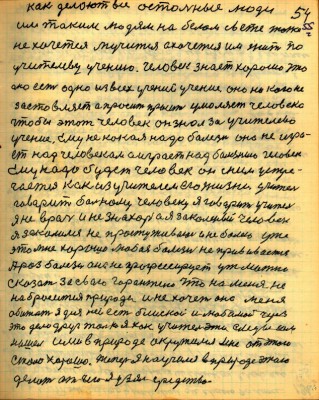 54
55
как делоют все остольные люди
им таким людям на белом свете тоже
не хочется мучится а хочется им жить по
учителеву учению. Человек знает хорошо Это
оно есть одно из всех учений учение оно никого не
заставляет а просит просит умоляет человека
чтобы этот человек он знал за учителево
учение. Ему не какая надо болезнь она не игро-
ет над человеком а играет над болезнию человек
Ему надо будет человек он с ним встре-
чается как из учителем его жизни учител
говорит больному человеку я говорит учител
я не врач и не знахор а я закаленый человек
Я закалился не простуживаюсь и не болею уже
это мне хорошо любая болезнь не прививается
А раз болезнь она не прогрессирует ут можно
сказат За своего горантело Это на меня не
набросится природа и не хочет она меня
обижат я для неё есть близкой и любимой через
это дело друг только я как учител эти следы сам
нашел в природе окружил мне от этого
стало хорошо. Теперь я научился в природе этого
делат от чего я взял средство